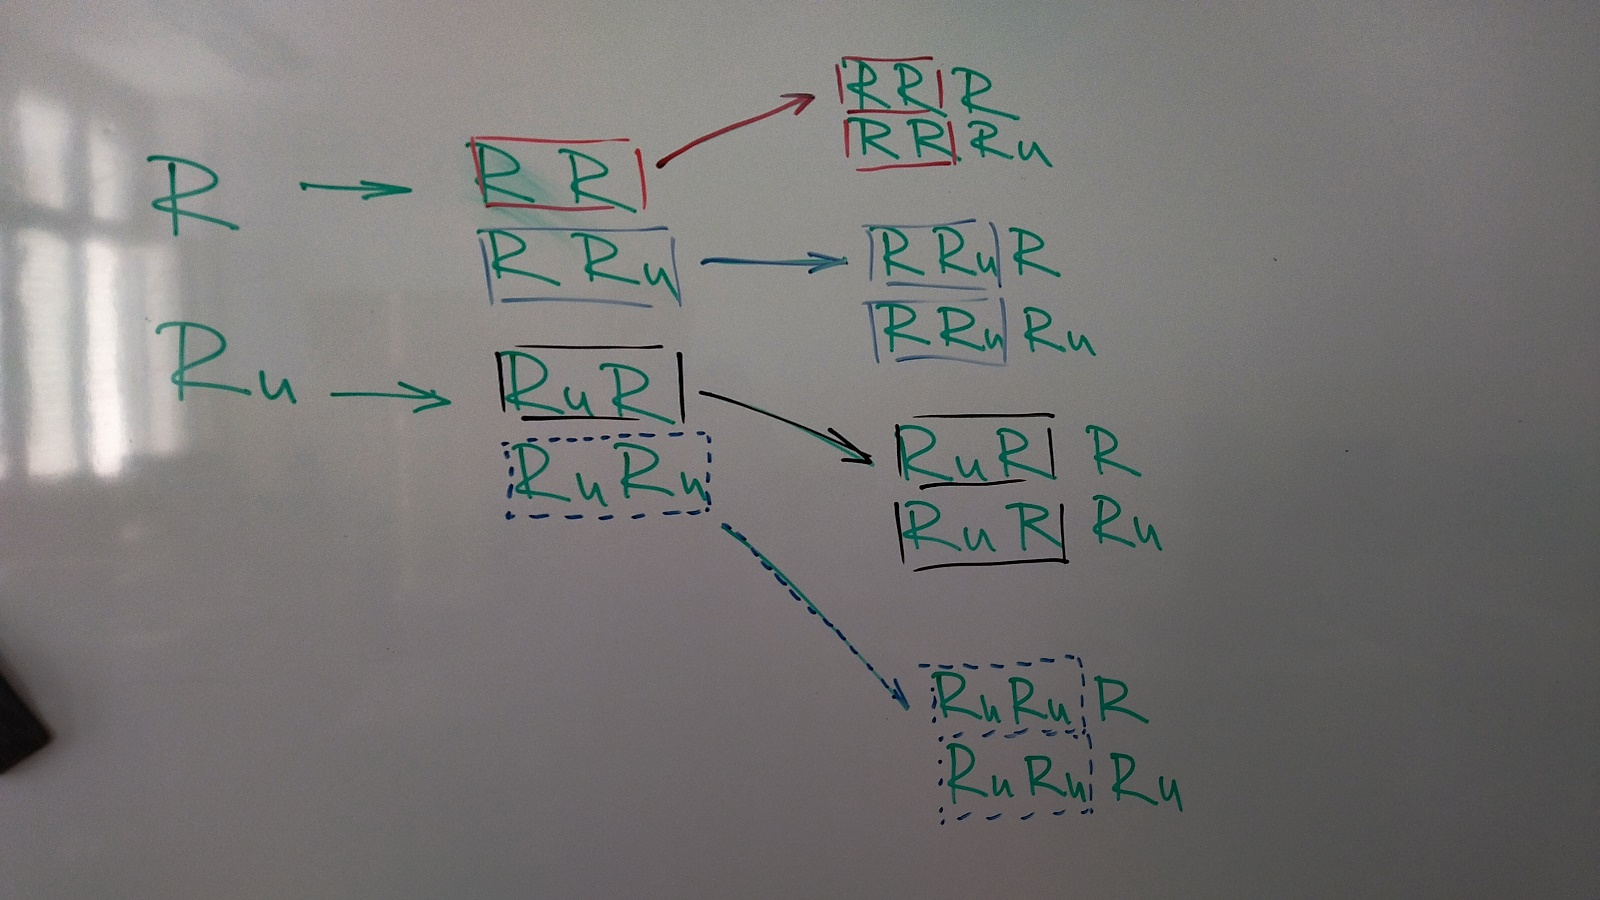 R
Ru
R R
R Ru
Ru R
Ru Ru
R R R
R R Ru
R Ru R
R Ru Ru
Ru R R
Ru R Ru
Ru Ru R
Ru Ru Ru